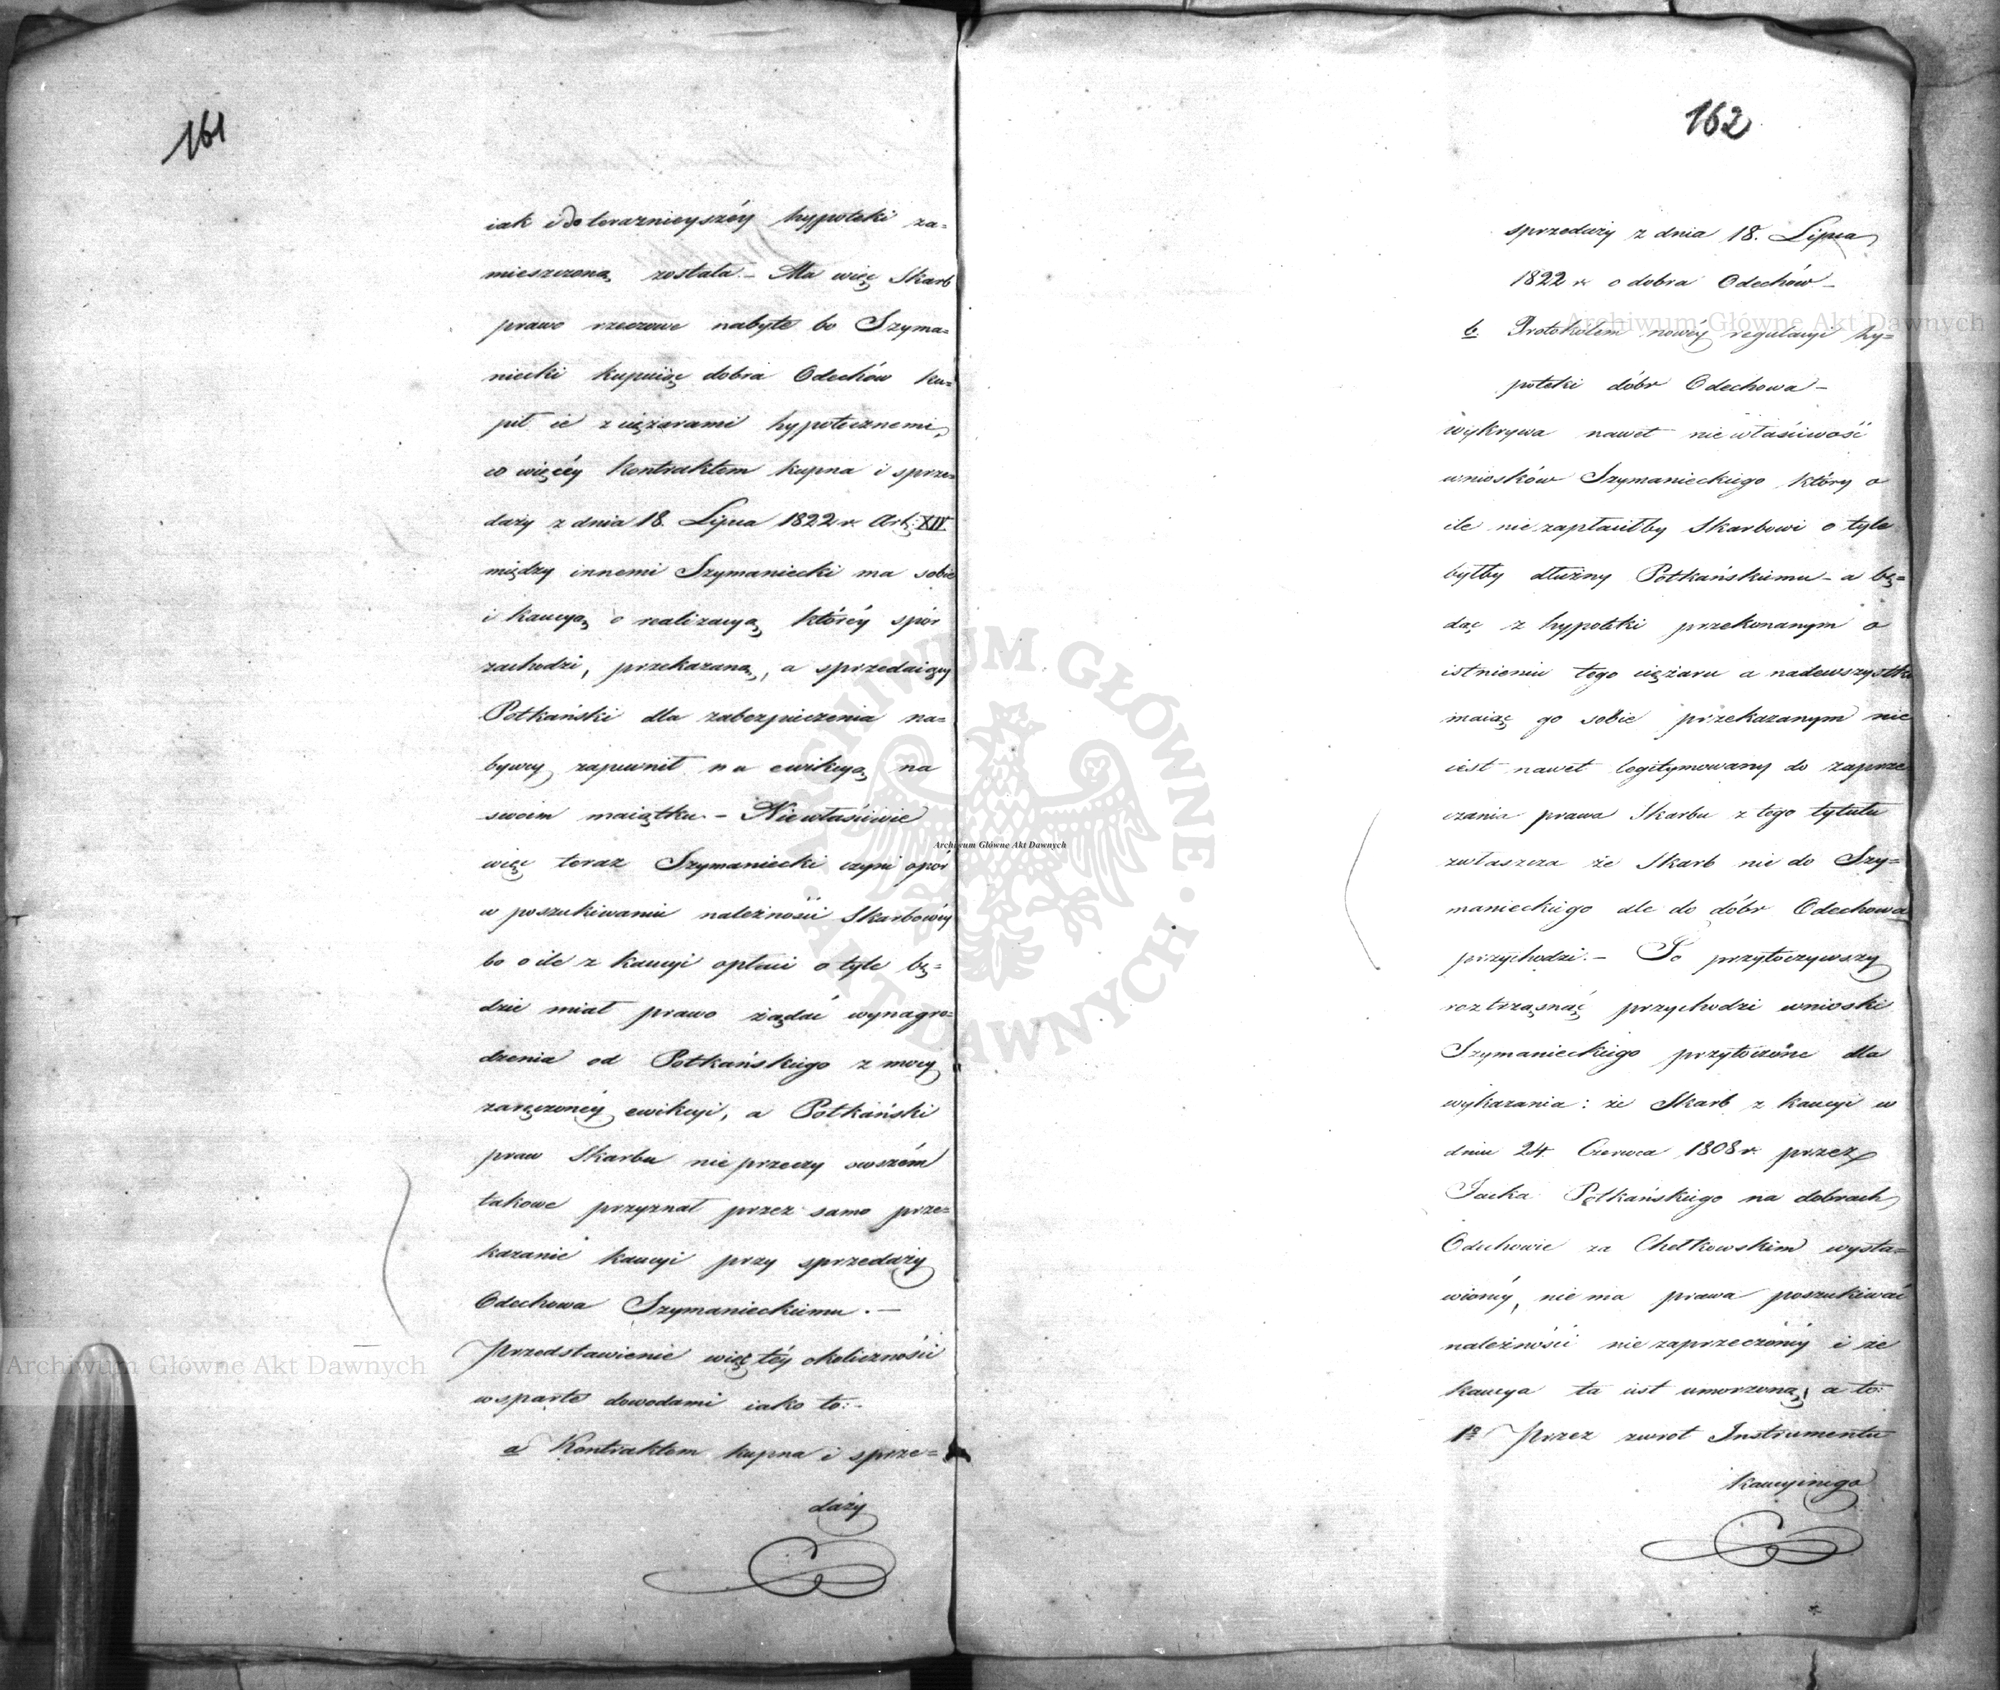 161
iak i do teraznieyszéy hypoteki za-
mieszczoną została.- Ma więc Skarb
prawo rzeczowe nabyte bo Szyma-
niecki kupuiąc dobra Odechów ku-
pił ie z ciężarami hypotecznemi,
co więcéy kontraktem kupna i sprze-
daży z dnia 18. Lipca 1822 r. Art: XIV
między innemi Szymaniecki ma sobie
i kaucyą o realizacyą któréy spór
zachodzi, przekazaną, a sprzedaiący
Potkański dla zabezpieczenia na-
bywcy zapewnił mu ewikcyą na
swoim maiątku.- Niewłaściwie
więc teraz Szymaniecki czyni opór
w poszukiwaniu należności Skarbowéy
bo o ile z kaucyi opłaci o tyle bę-
dzie miał prawo żądać wynagro-
dzenia od Potkańskiego z mocy
zaręczonéy ewikcyi, a Potkański
praw Skarbu nie przeczy owszém
takowe przyznał przez samo prze-
kazanie kaucyi przy sprzedaży
Odechowa Szymanieckiemu.-
Przedstawienie więc téy okoliczności
wsparte dowodami iako to:-
a Kontraktem kupna i sprze-
daży
162
sprzedaży z dnia 18. Lipca
1822 r. o dobra Odechów-
b. Protokułem nowéy regulacyi hy-
poteki dóbr Odechowa-
wykrywa nawet niewłaściwość
wniosków Szymanieckiego który o
ile niezapłaciłby Skarbowi o tyle
byłby dłużny Potkańskiemu- a bę-
dąc z hypoteki przekonanym o
istnieniu tego ciężaru a nadewszystko
maiąc go sobie przekazanym nie
iest nawet legitymowany do zaprze
czania prawa Skarbu z tego tytułu
zwłaszcza że Skarb nie do Szy-
manieckiego ale do dóbr Odechowa
przychodzi.- To przytoczywszy
roztrząsnąć przychodzi wnioski
Szymanieckiego przytoczone dla
wykazania: że Skarb z kaucyi w
dniu 24. Czerwca 1808 r. przez
Jacka Potkańskiego na dobrach
Odechowie za Chełkowskim wysta-
wionéy, nie ma prawa poszukiwać
należności niezaprzeczonéy i że
kaucya ta iest umorzoną, a to:
1º Przez zwrot Instrumentu
kaucyinego
Archiwum Główne Akt Dawnych
Archiwum Główne Akt Dawnych
Archiwum Główne Akt Dawnych
ARCHIWUM GŁÓWNE · AKT DAWNYCH ·